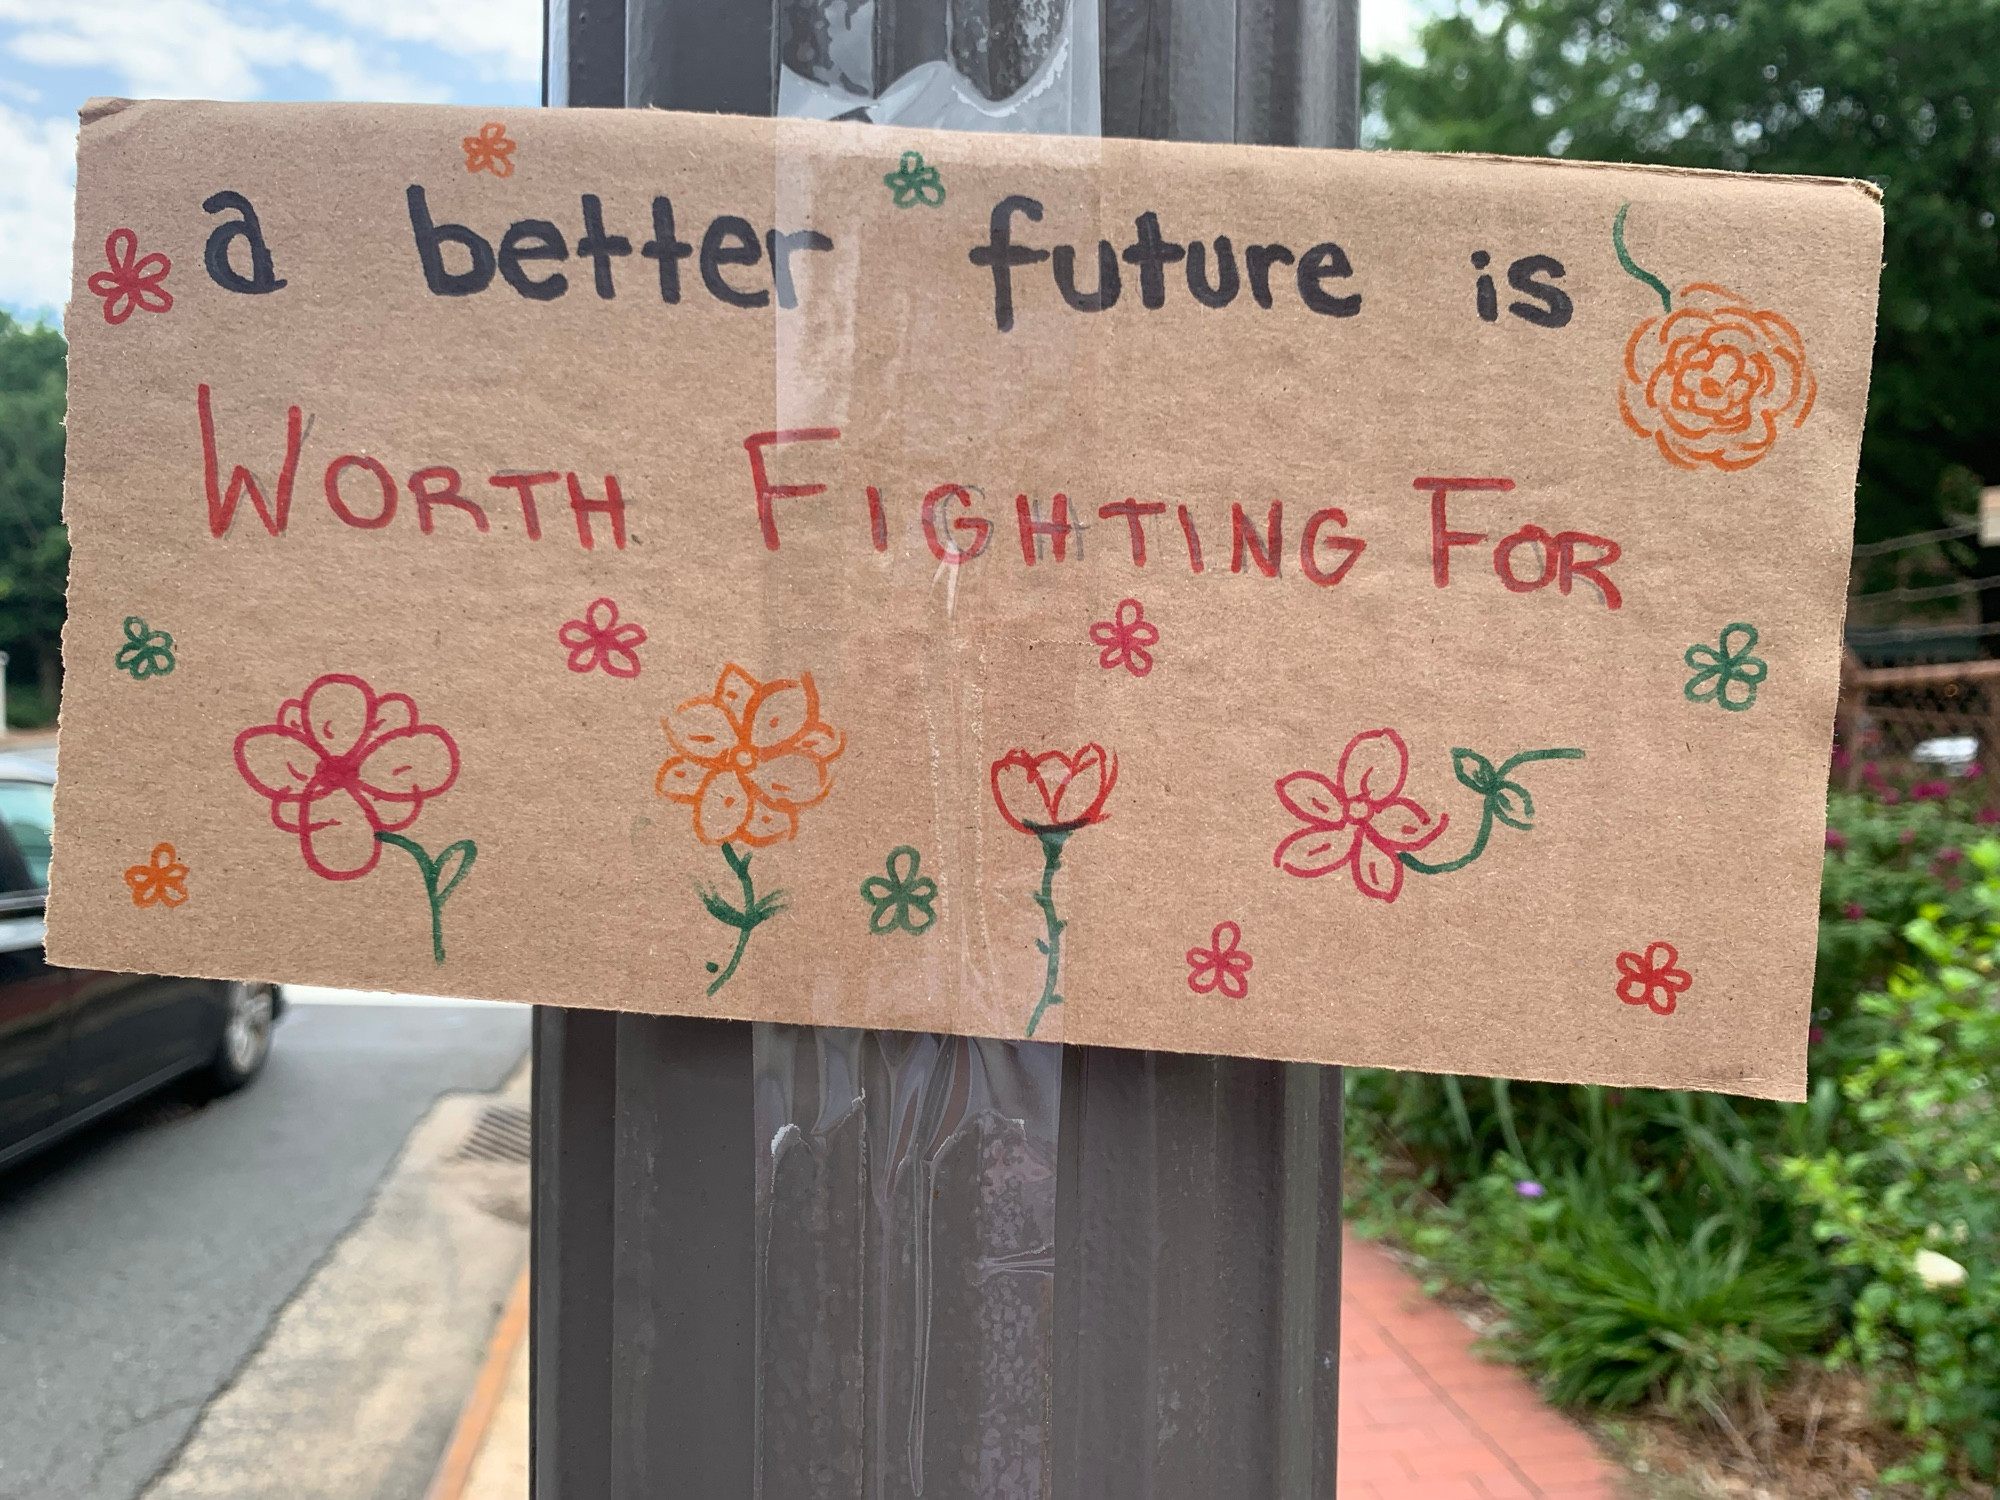 a better future is
WORTH FIGHTING FOR